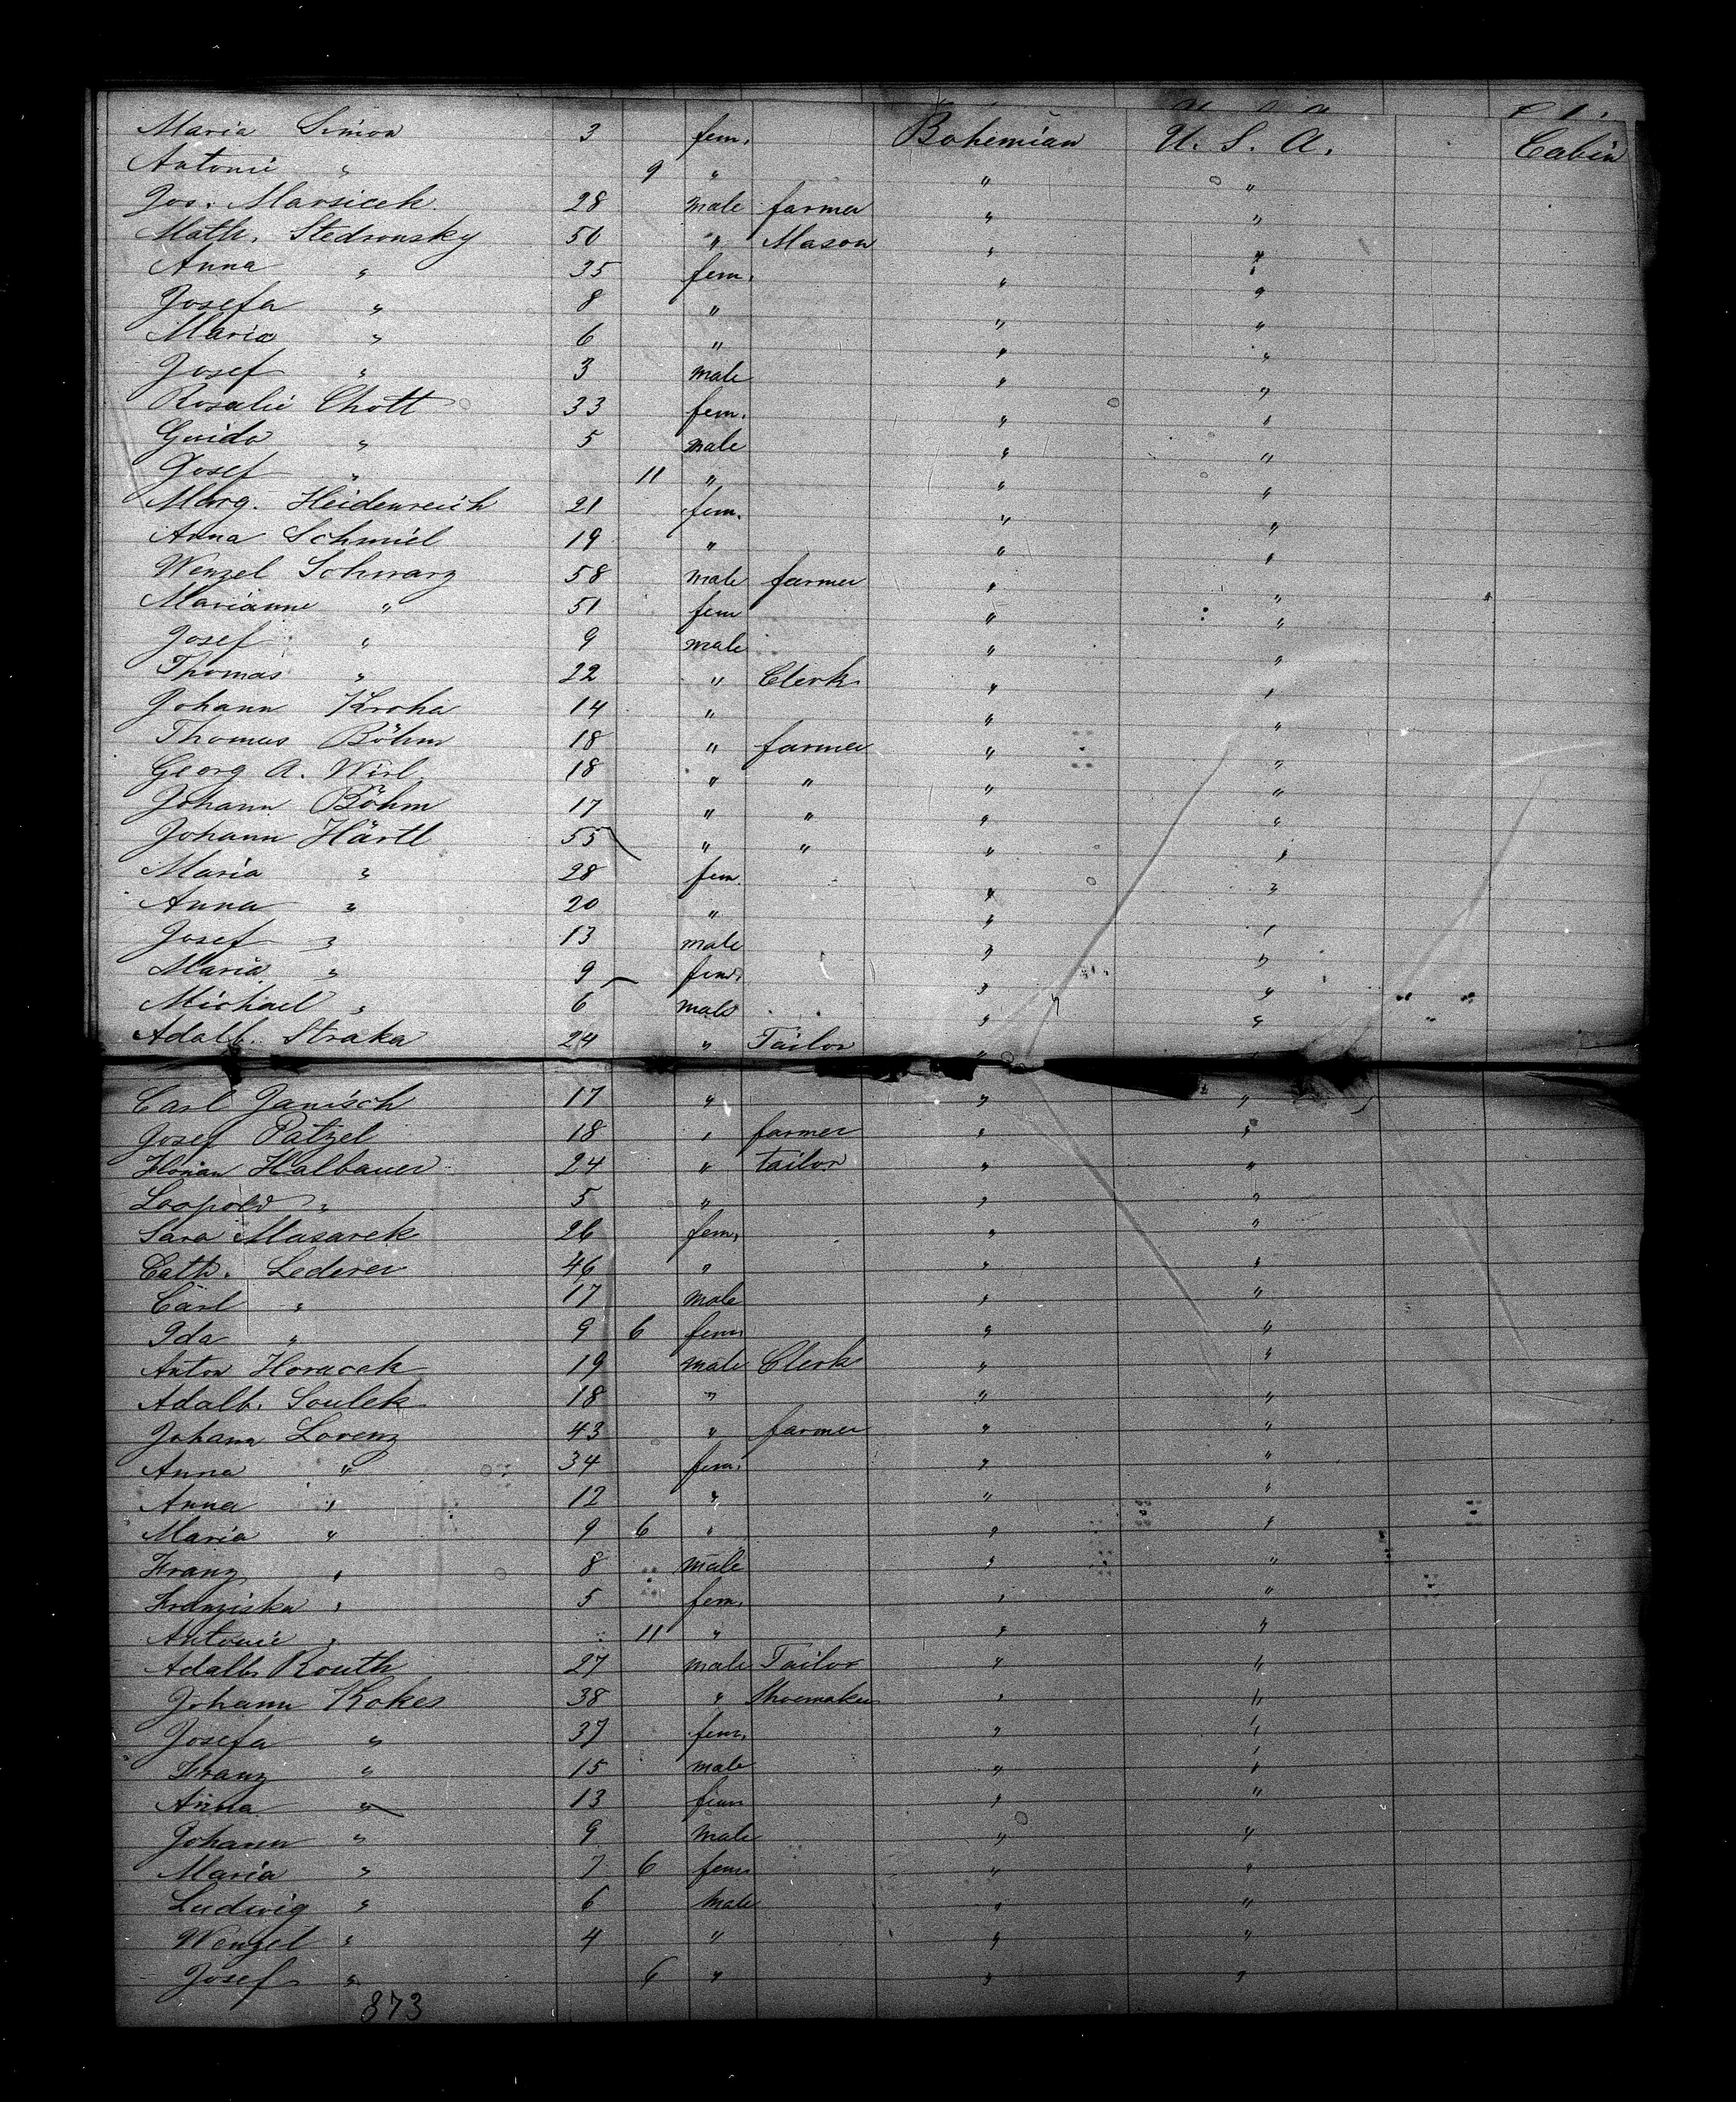 Maria Simon 3 fem. Bohemian U. S. A. Cabin
Antonie " 9 " " "
Jos. Marsicek 28 male farmer " "
Math. Stedronsky 50 " Mason " "
Anna " 35 fem. " "
Josefa " 8 " " "
Maria " 6 " " "
Josef " 3 male " "
Rosalie Chott 33 fem. " "
Guido " 5 male " "
Josef " 11 " " "
Marg. Heidenreich 21 fem. " "
Anna Schmiel 19 " " "
Wenzel Schwarz 58 male farmer " "
Marianne " 51 fem " "
Josef " 9 male " "
Thomas " 22 " Clerk " "
Johann Kroha 14 " " "
Thomas Böhm 18 " farmer " "
Georg A. Wirl 18 " " " "
Johann Böhm 17 " " " "
Johann Härtl 55 " " " "
Maria " 28 fem. " "
Anna " 20 " " "
Josef " 13 male " "
Maria " 9 fem. " "
Michael " 6 male " "
Adalb. Straka 24 " Tailor " "
Carl Janisch 17 " " "
Josef Patzel 18 " farmer " "
Florian Halbauer 24 " tailor " "
Leopold " 5 " " "
Sara Masarek 26 fem. " "
Cath. Lederer 46 " " "
Carl " 17 male " "
Ida " 9 6 fem " "
Anton Horacek 19 male Clerk " "
Adalb. Soulek 18 " " "
Johann Lorenz 43 " farmer " "
Anna " 34 fem. " "
Anna " 12 " " "
Maria " 9 6 " " "
Franz " 8 male " "
Franziska " 5 fem. " "
Antonie " 11 " " "
Adalb. Routh 27 male Tailor " "
Johann Kokes 38 " Shoemaker " "
Josefa " 37 fem. " "
Franz " 15 male " "
Anna " 13 fem " "
Johann " 9 male " "
Maria " 7 6 fem " "
Ludwig " 6 male " "
Wenzel " 4 " " "
Josef " 6 " " "
873